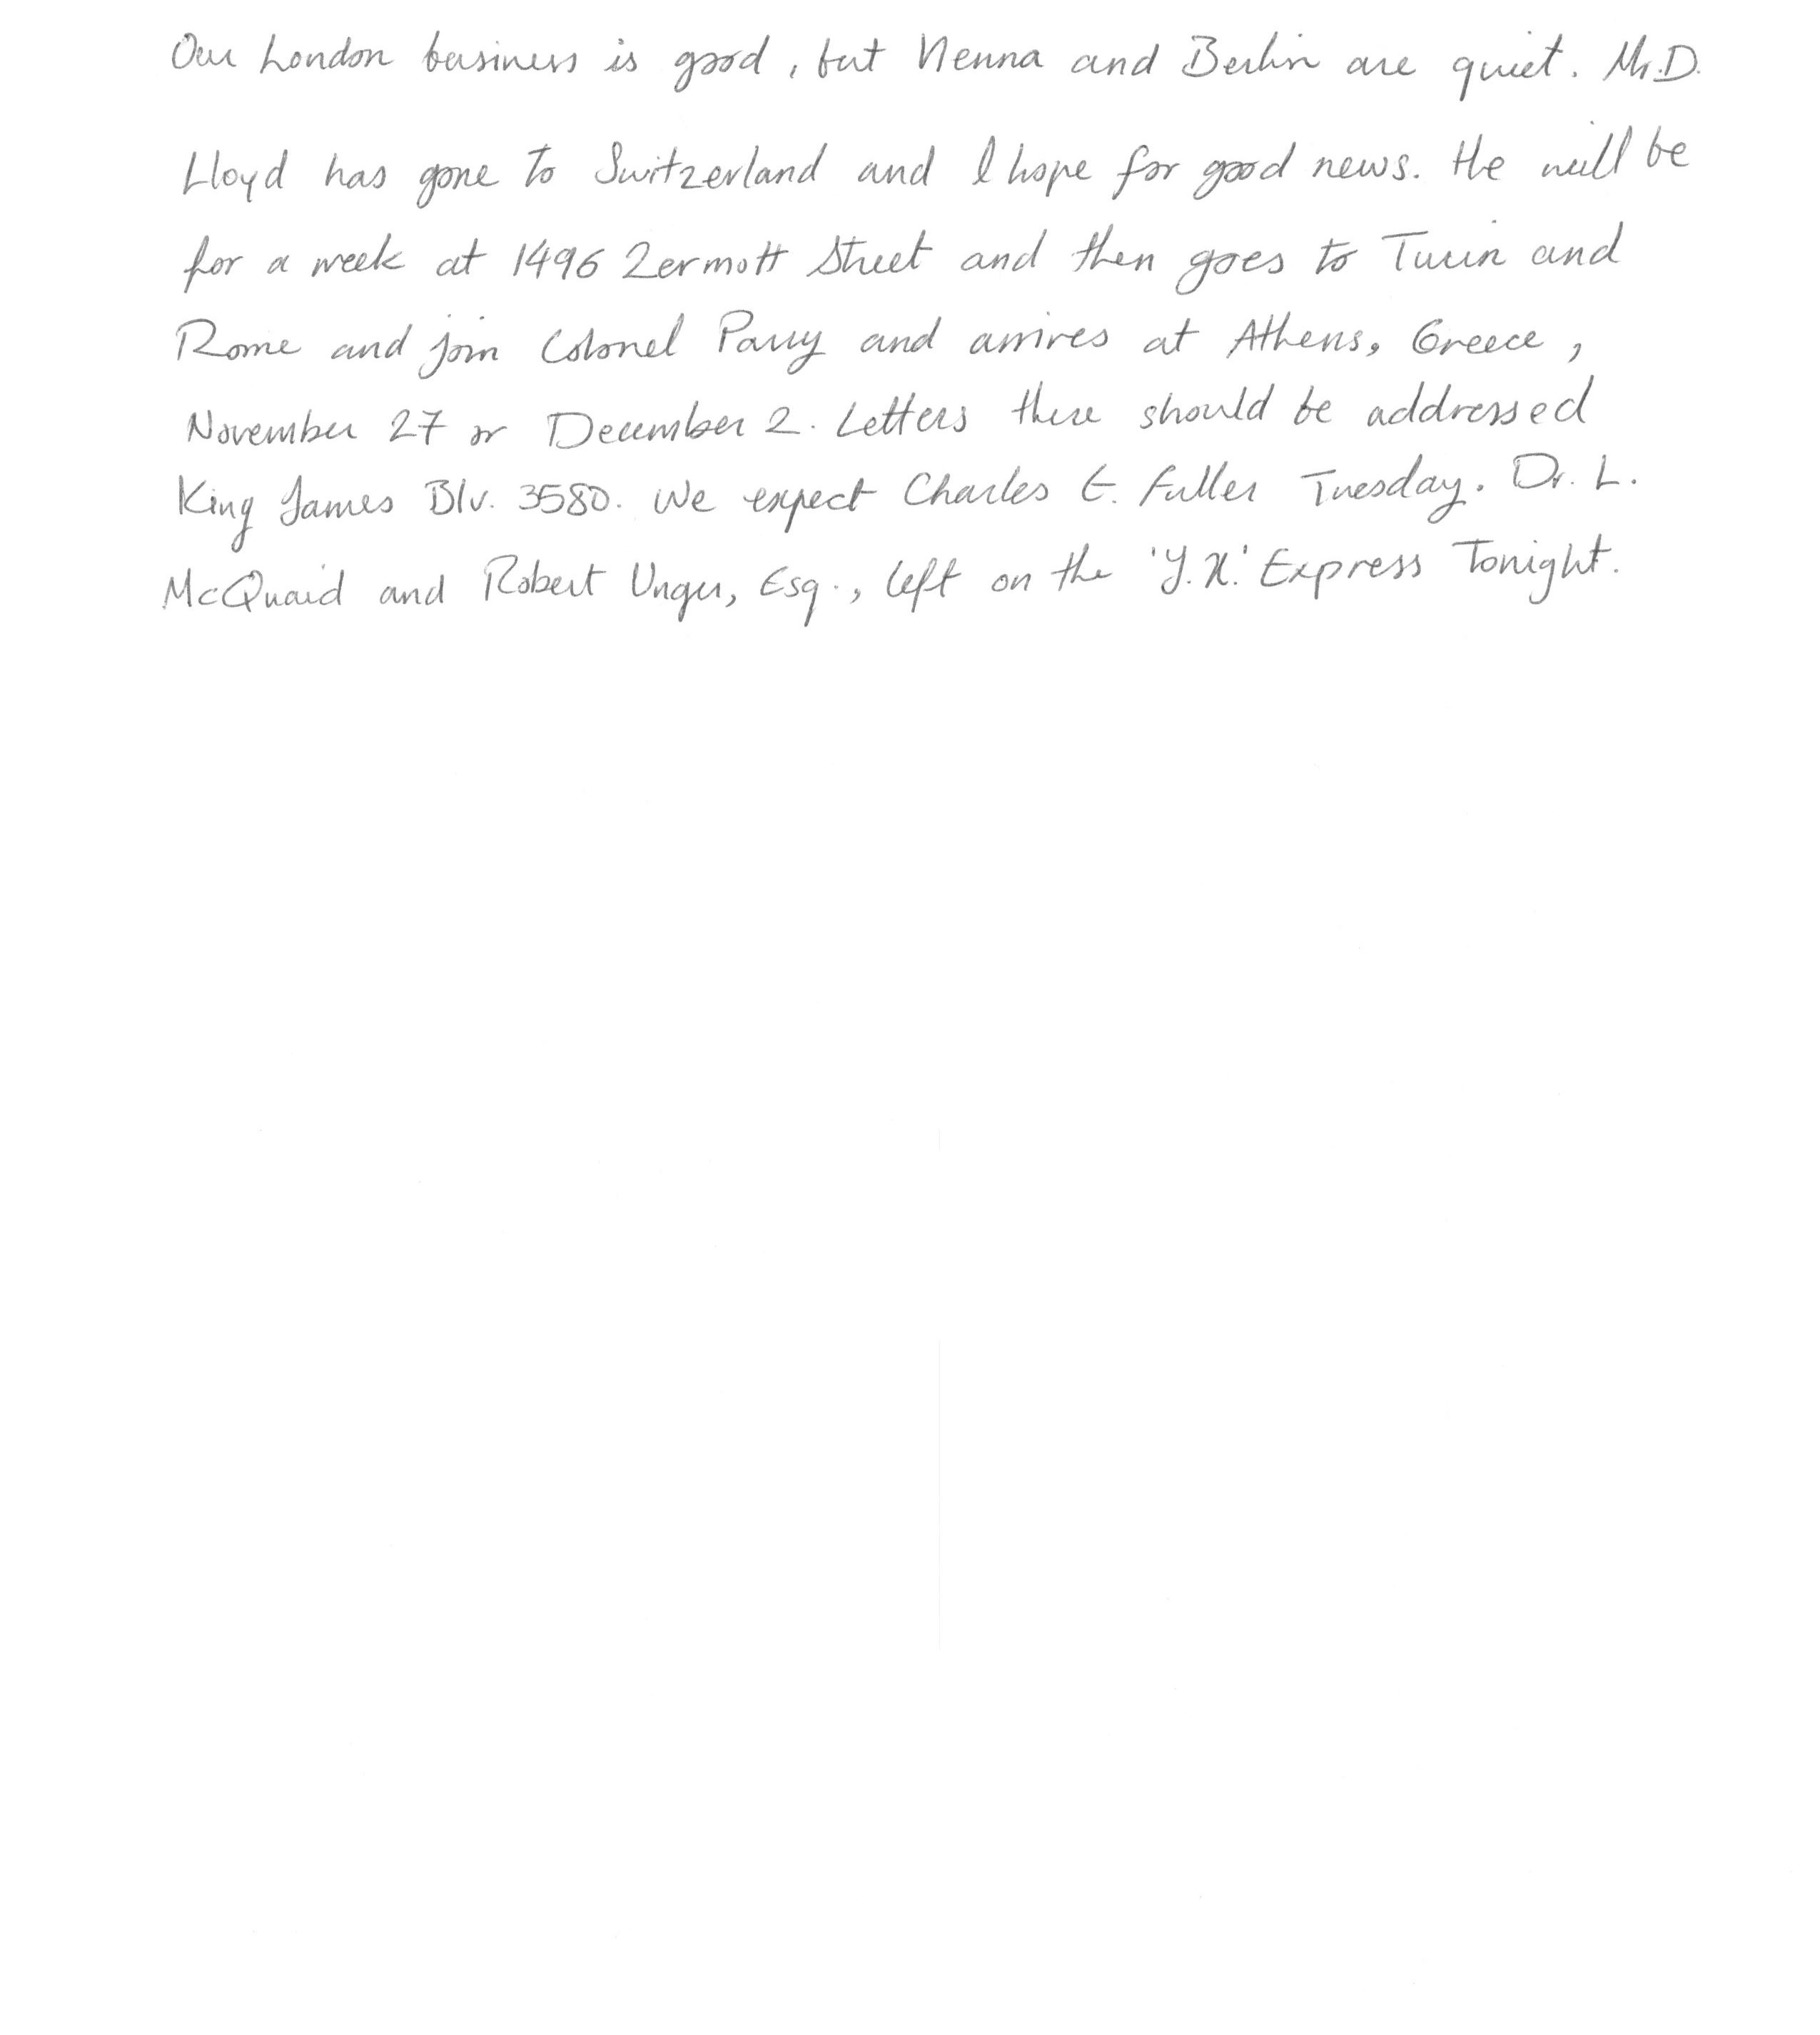 Our London business is good, but Vienna and Berlin are quiet. Mr. D.
Lloyd has gone to Switzerland and I hope for good news. He will be
for a week at 1496 Zermott Street and then goes to Turin and
Rome and join Colonel Parry and arrives at Athens, Greece,
November 27 or December 2. Letters there should be addressed
King James Blv. 3580. We expect Charles E. Fuller Tuesday. Dr. L.
McQuaid and Robert Unger, Esq., left on the 'Y.X.' Express Tonight.